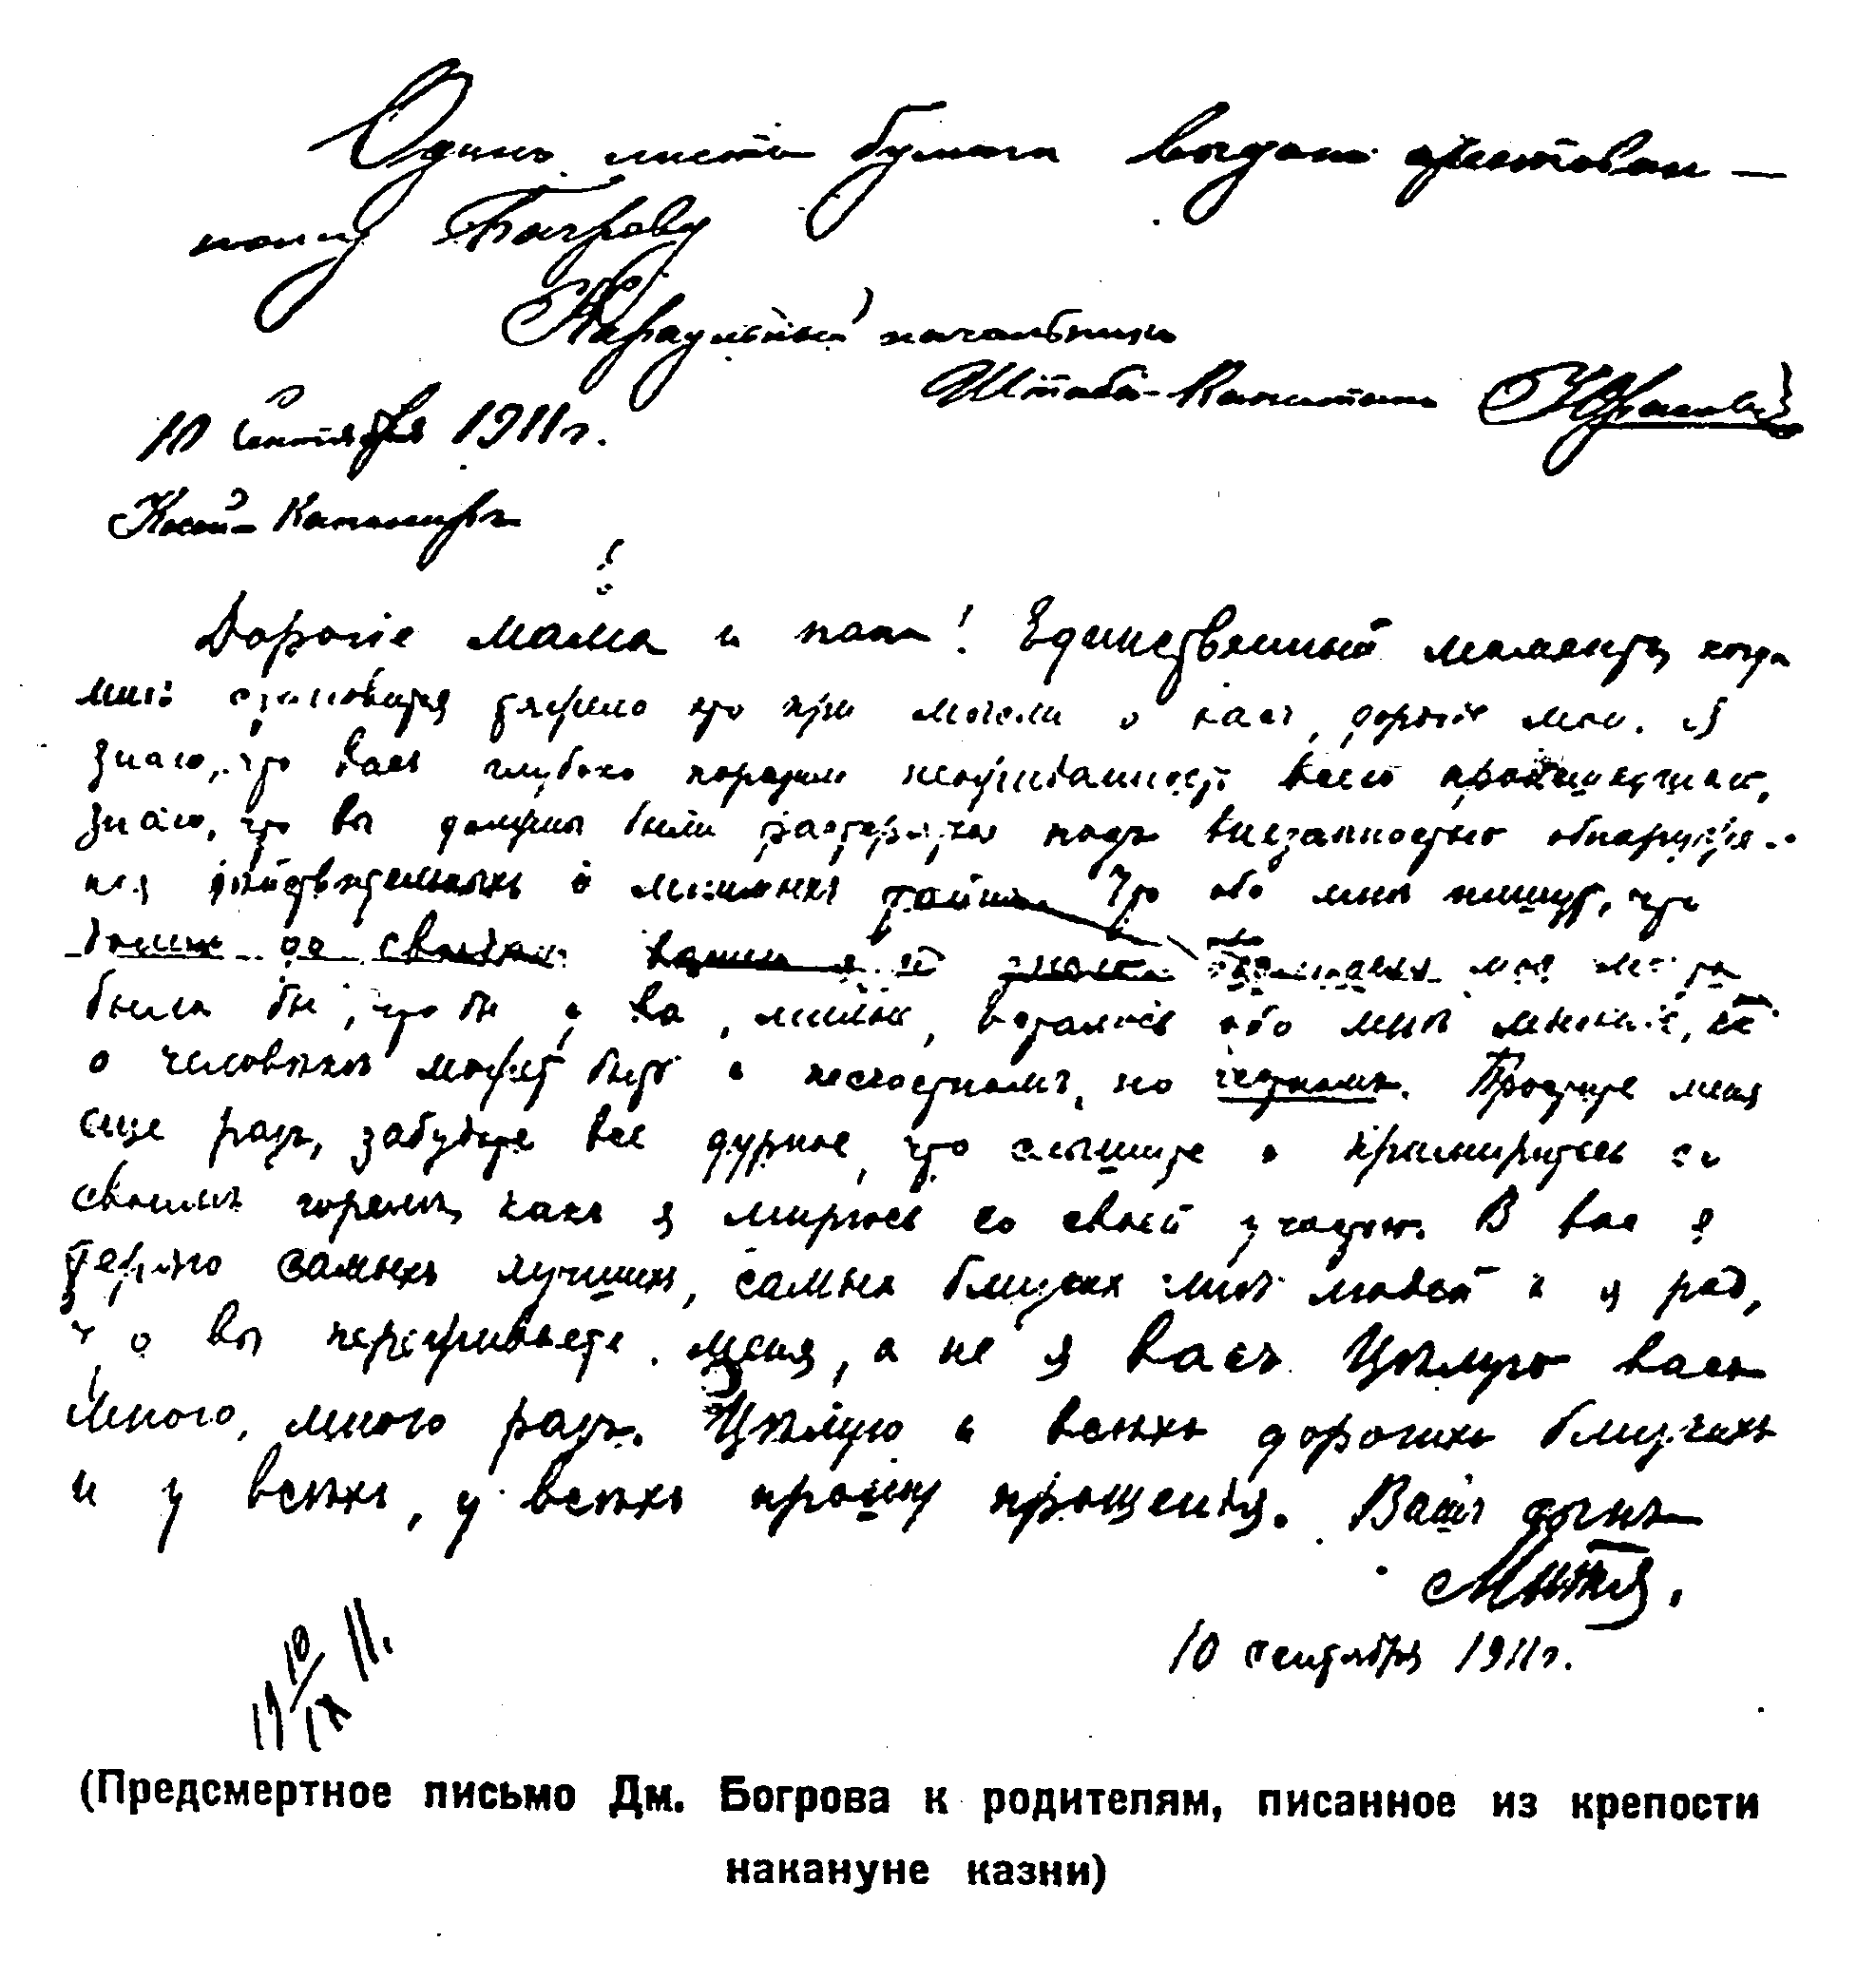 Одинъ листъ бумаги выданъ арестован-
ному Багрову
Караульный начальникъ
Штабс-Капитанъ
10 Сентября 1911 г.
Косой-Капониръ
Дорогіе мама и папа! Единственный моментъ, когда
мнѣ становится тяжело это при мысли о васъ, дорогіе мои. Я
знаю, что васъ глубоко поразила неожиданность всего происшедшаго,
знаю, что вы должны были растеряться подъ внезапностью обнаруже-
нія дѣйствительныхъ и мнимыхъ тайнъ. Что обо мнѣ пишутъ, что
моя мечта
была бы, что бы у васъ, милые, осталось обо мнѣ мнѣніе, какъ
о человѣкѣ можетъ быть и несчастномъ, но честномъ. Простите меня
еще разъ, забудьте все дурное, что слышите и примиритесь со
своимъ горемъ, какъ я мирюсь со своей участью. В васъ я
теряю самыхъ лучшихъ, самыхъ близкихъ мнѣ людей и я рад,
что вы переживаете меня, а не я васъ. Цѣлую васъ
много, много разъ. Цѣлую и всѣхъ дорогихъ близкихъ
и у всѣхъ, у всѣхъ прошу прощенія. Вашъ сынъ
Митя.
10 сентября 1911 г.
19 10/IX 11.
(Предсмертное письмо Дм. Богрова к родителям, писанное из крепости
накануне казни)